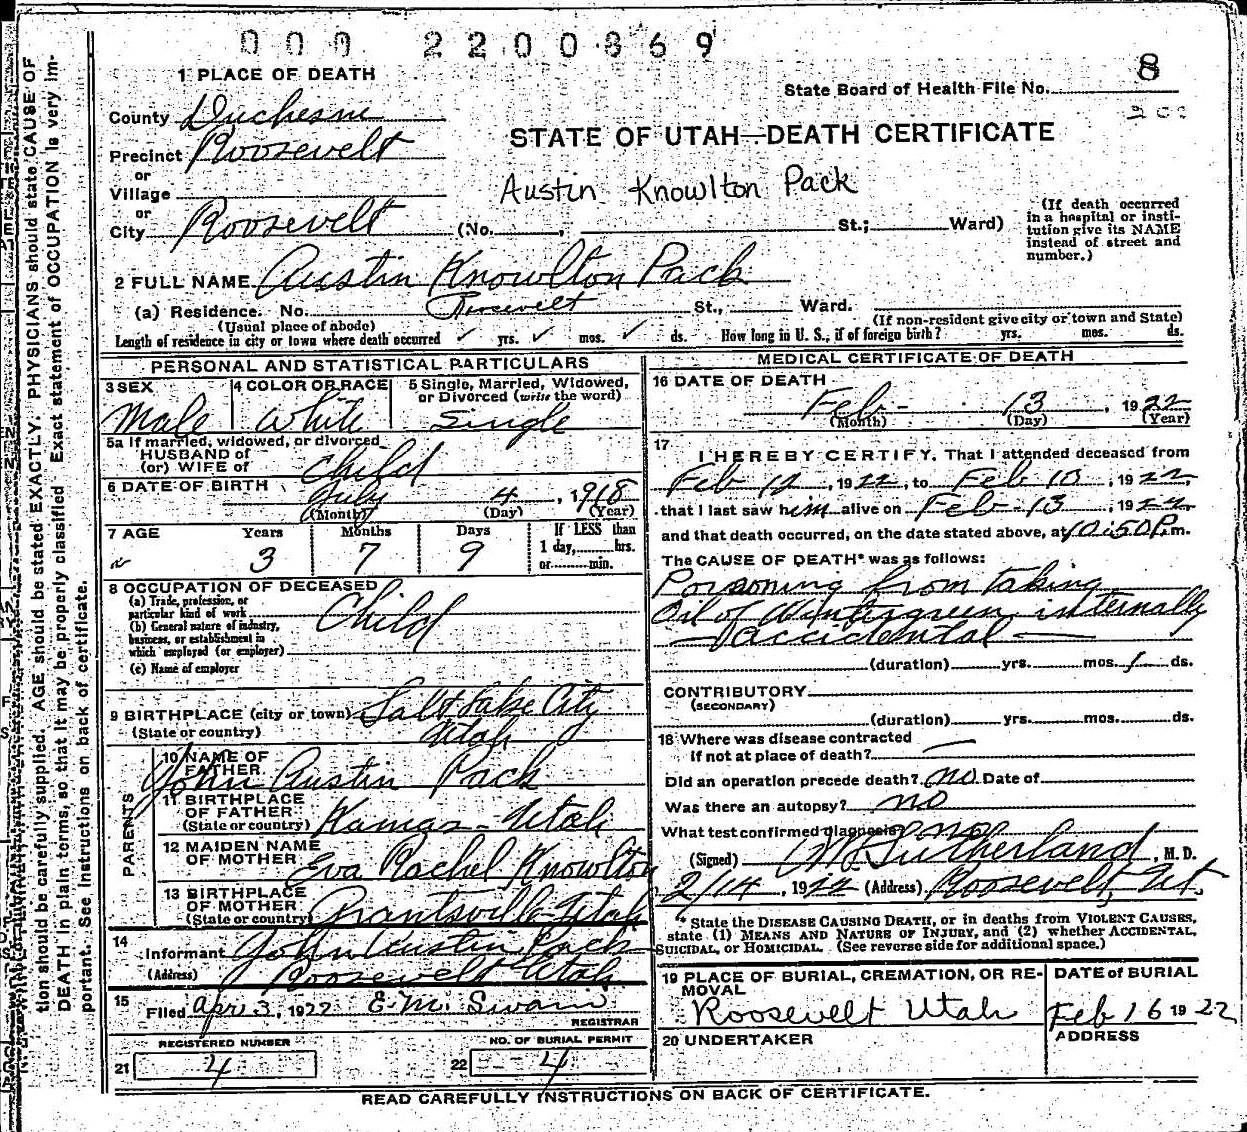 000 2200869
1 PLACE OF DEATH
8
State Board of Health File No.
County Duchesne
STATE OF UTAH—DEATH CERTIFICATE
Precinct Roosevelt
or
Village
Austin Knowlton Pack
or
City Roosevelt (No. , St.; Ward)
(If death occurred in a hospital or insti-
tution give its NAME
instead of street and
number.)
2 FULL NAME Austin Knowlton Pack
(a) Residence. No. Roosevelt St., Ward.
(Usual place of abode)
(If non-resident give city or town and State)
Length of residence in city or town where death occurred ✓ yrs. ✓ mos. ✓ ds. How long in U. S., if of foreign birth? yrs. mos. ds.
PERSONAL AND STATISTICAL PARTICULARS
3 SEX
Male
4 COLOR OR RACE
White
5 Single, Married, Widowed,
or Divorced (write the word)
Single
5a If married, widowed, or divorced
HUSBAND of
(or) WIFE of Child
6 DATE OF BIRTH
July 4, 1918
(Month) (Day) (Year)
7 AGE Years Months Days
3 7 9
If LESS than
1 day, hrs.
or min.
8 OCCUPATION OF DECEASED
(a) Trade, profession, or
particular kind of work
Child
(b) General nature of industry,
business, or establishment in
which employed (or employer)
(c) Name of employer
9 BIRTHPLACE (city or town) Salt Lake City
(State or country) Utah
PARENTS
10 NAME OF
FATHER
John Austin Pack
11 BIRTHPLACE
OF FATHER
(State or country) Kamas - Utah
12 MAIDEN NAME
OF MOTHER Eva Rachel Knowlton
13 BIRTHPLACE
OF MOTHER
(State or country) Grantsville Utah
14
Informant John Austin Pack
(Address) Roosevelt Utah
15
Filed Apr 3, 1922 E. M. Swain
REGISTRAR
REGISTERED NUMBER
21 4
NO. OF BURIAL PERMIT
22 4
MEDICAL CERTIFICATE OF DEATH
16 DATE OF DEATH
Feb - 13, 1922
(Month) (Day) (Year)
17
I HEREBY CERTIFY, That I attended deceased from
Feb 12, 1922, to Feb 13, 1922,
that I last saw him alive on Feb - 13, 1922
and that death occurred, on the date stated above, at 10:50 P.m.
The CAUSE OF DEATH* was as follows:
Poisoning from taking
Oil of Wintergreen internally
— accidental —
(duration) yrs. mos. 1 ds.
CONTRIBUTORY
(SECONDARY)
(duration) yrs. mos. ds.
18 Where was disease contracted
if not at place of death? —
Did an operation precede death? no Date of
Was there an autopsy? no
What test confirmed diagnosis? no
(Signed) Sutherland, M. D.
2/14, 1922 (Address) Roosevelt, Ut.
* State the DISEASE CAUSING DEATH, or in deaths from VIOLENT CAUSES,
state (1) MEANS AND NATURE OF INJURY, and (2) whether ACCIDENTAL,
SUICIDAL, or HOMICIDAL. (See reverse side for additional space.)
19 PLACE OF BURIAL, CREMATION, OR RE-
MOVAL
Roosevelt Utah
DATE of BURIAL
Feb 16 1922
20 UNDERTAKER
ADDRESS
READ CAREFULLY INSTRUCTIONS ON BACK OF CERTIFICATE.
tion should be carefully supplied. AGE should be stated EXACTLY. PHYSICIANS should state CAUSE OF
DEATH in plain terms, so that it may be properly classified. Exact statement of OCCUPATION is very im-
portant. See instructions on back of certificate.